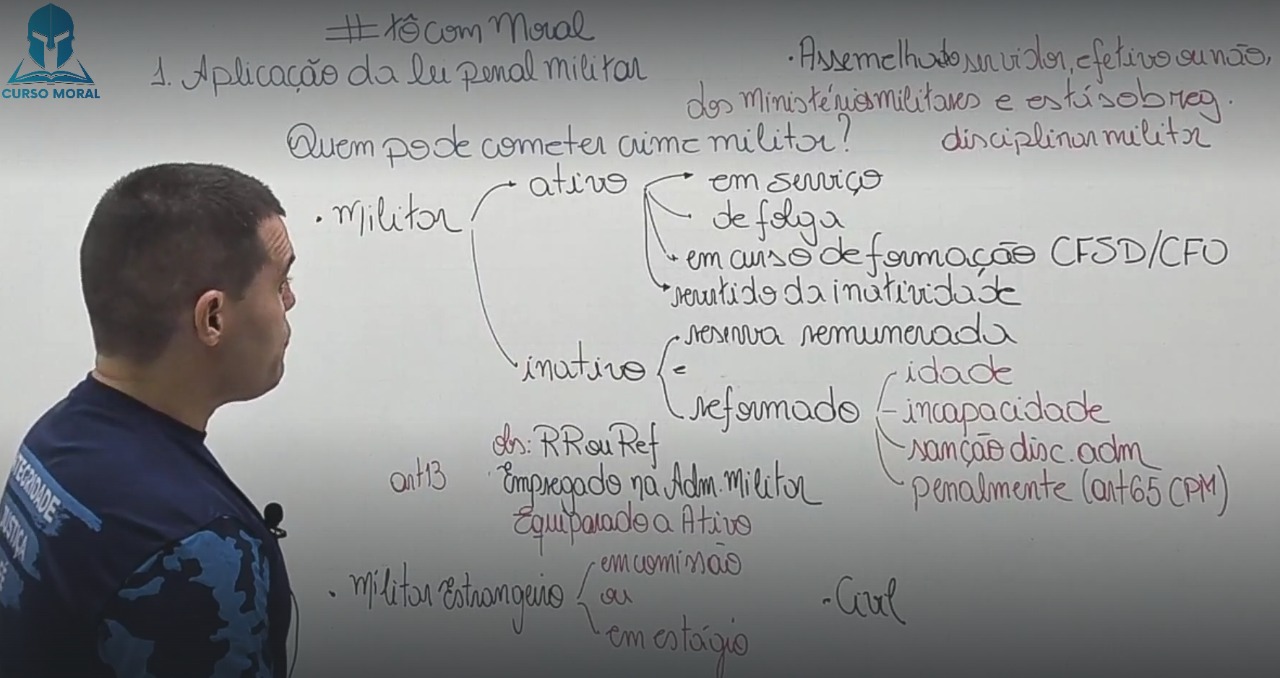 CURSO MORAL
#tô com Moral
1. Aplicação da lei penal militar
• Assemelhado servidor, efetivo ou não,
dos ministérios militares e está sob reg.
disciplinar militar
Quem pode cometer crime militar?
• Militar
ativo
em serviço
de folga
em curso de formação CFSD/CFO
revertido da inatividade
inativo
reserva remunerada
e
reformado
idade
incapacidade
sanção disc. adm
penalmente (art 65 CPM)
obs: RR ou Ref
art 13
Empregado na Adm. Militar
Equiparado a Ativo
• Militar Estrangeiro
em comissão
ou
em estágio
• Civil